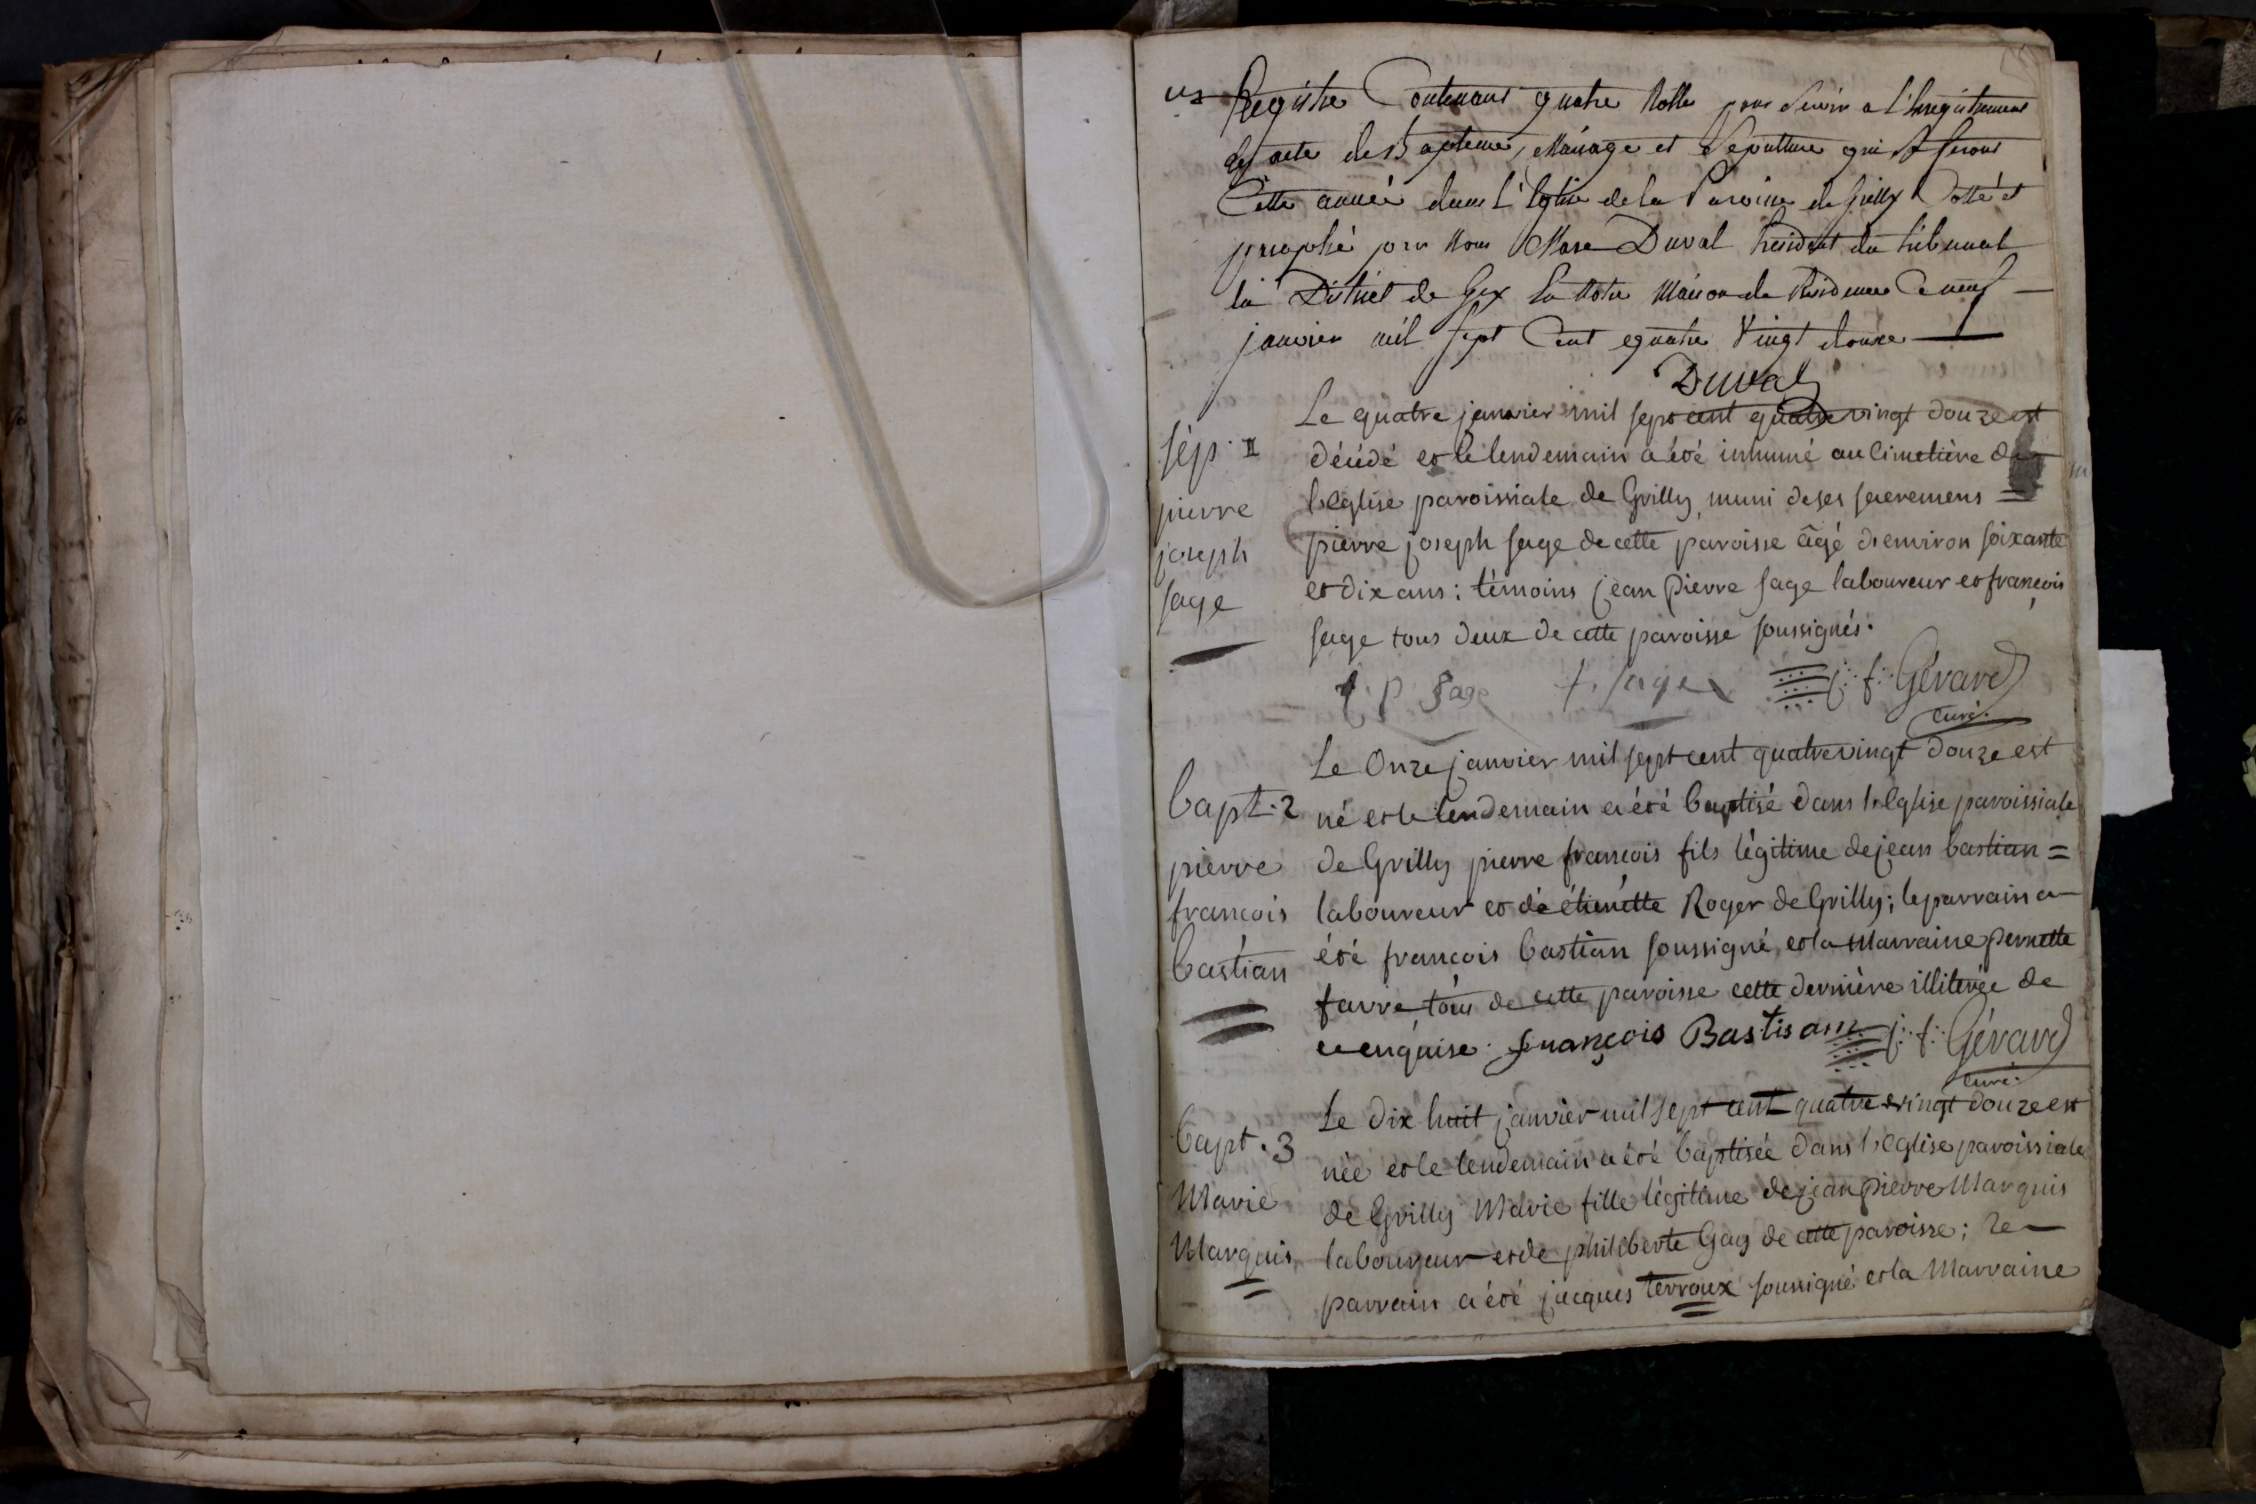 Registre Contenant quatre Rolle pour Servir a L'Enregistrement
des acte de Bapteme, Mariage et Sepulture qui se feront
Cette année dans L'Eglise de la Paroisse de Grilly Cotté et
paraphé par Nous Marc Duval President du tribunal
du District de Gex En Notre Maison de Residence Ce neuf
janvier mil sept Cent quatre Vingt douze
Duval
sép. 1
pierre
joseph
sage
Le quatre janvier mil sept cent quatre vingt douze est
décédé et le lendemain a été inhumé au cimetière de
l'Eglise paroissiale de Grilly, muni de ses sacremens =
pierre joseph sage de cette paroisse âgé d'environ soixante
et dix ans : témoins jean pierre sage laboureur et françois
sage tous deux de cette paroisse soussignés.
j. p sage f. sage j: f: Gérard
curé.
bapt. 2
pierre
françois
bastian
Le Onze janvier mil sept cent quatre vingt douze est
né et le lendemain a été baptisé dans l'Eglise paroissiale
de Grilly pierre françois fils légitime de jean bastian =
laboureur et de étienette Roger de Grilly; le parrain a
été françois bastian soussigné, et la Marraine pernette
favre, tous de cette paroisse cette dernière illiterée de
ce enquise. françois Bastisan j: f: Gérard
curé.
bapt. 3
Marie
Marquis
Le dix huit janvier mil sept cent quatre vingt douze est
née et le lendemain a été baptisée dans l'Eglise paroissiale
de Grilly Marie fille légitime de jean pierre Marquis
laboureur et de philiberte Gay de cette paroisse; le
parrain a été jacques terroux soussigné et la Marraine